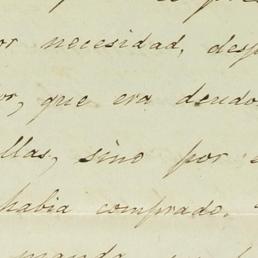 or necesidad, desp
or, que era deudo
llas, sino por
habia comprado.